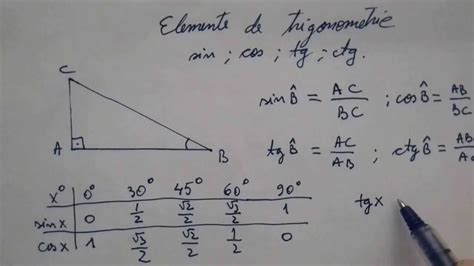 Elemente de trigonometrie
sin ; cos ; tg ; ctg.
C
A
B
sin B̂ = AC/BC ; cos B̂ = AB/BC
tg B̂ = AC/AB ; ctg B̂ = AB/A
x° 0° 30° 45° 60° 90°
sin x 0 1/2 √2/2 √3/2 1
cos x 1 √3/2 √2/2 1/2 0
tg x